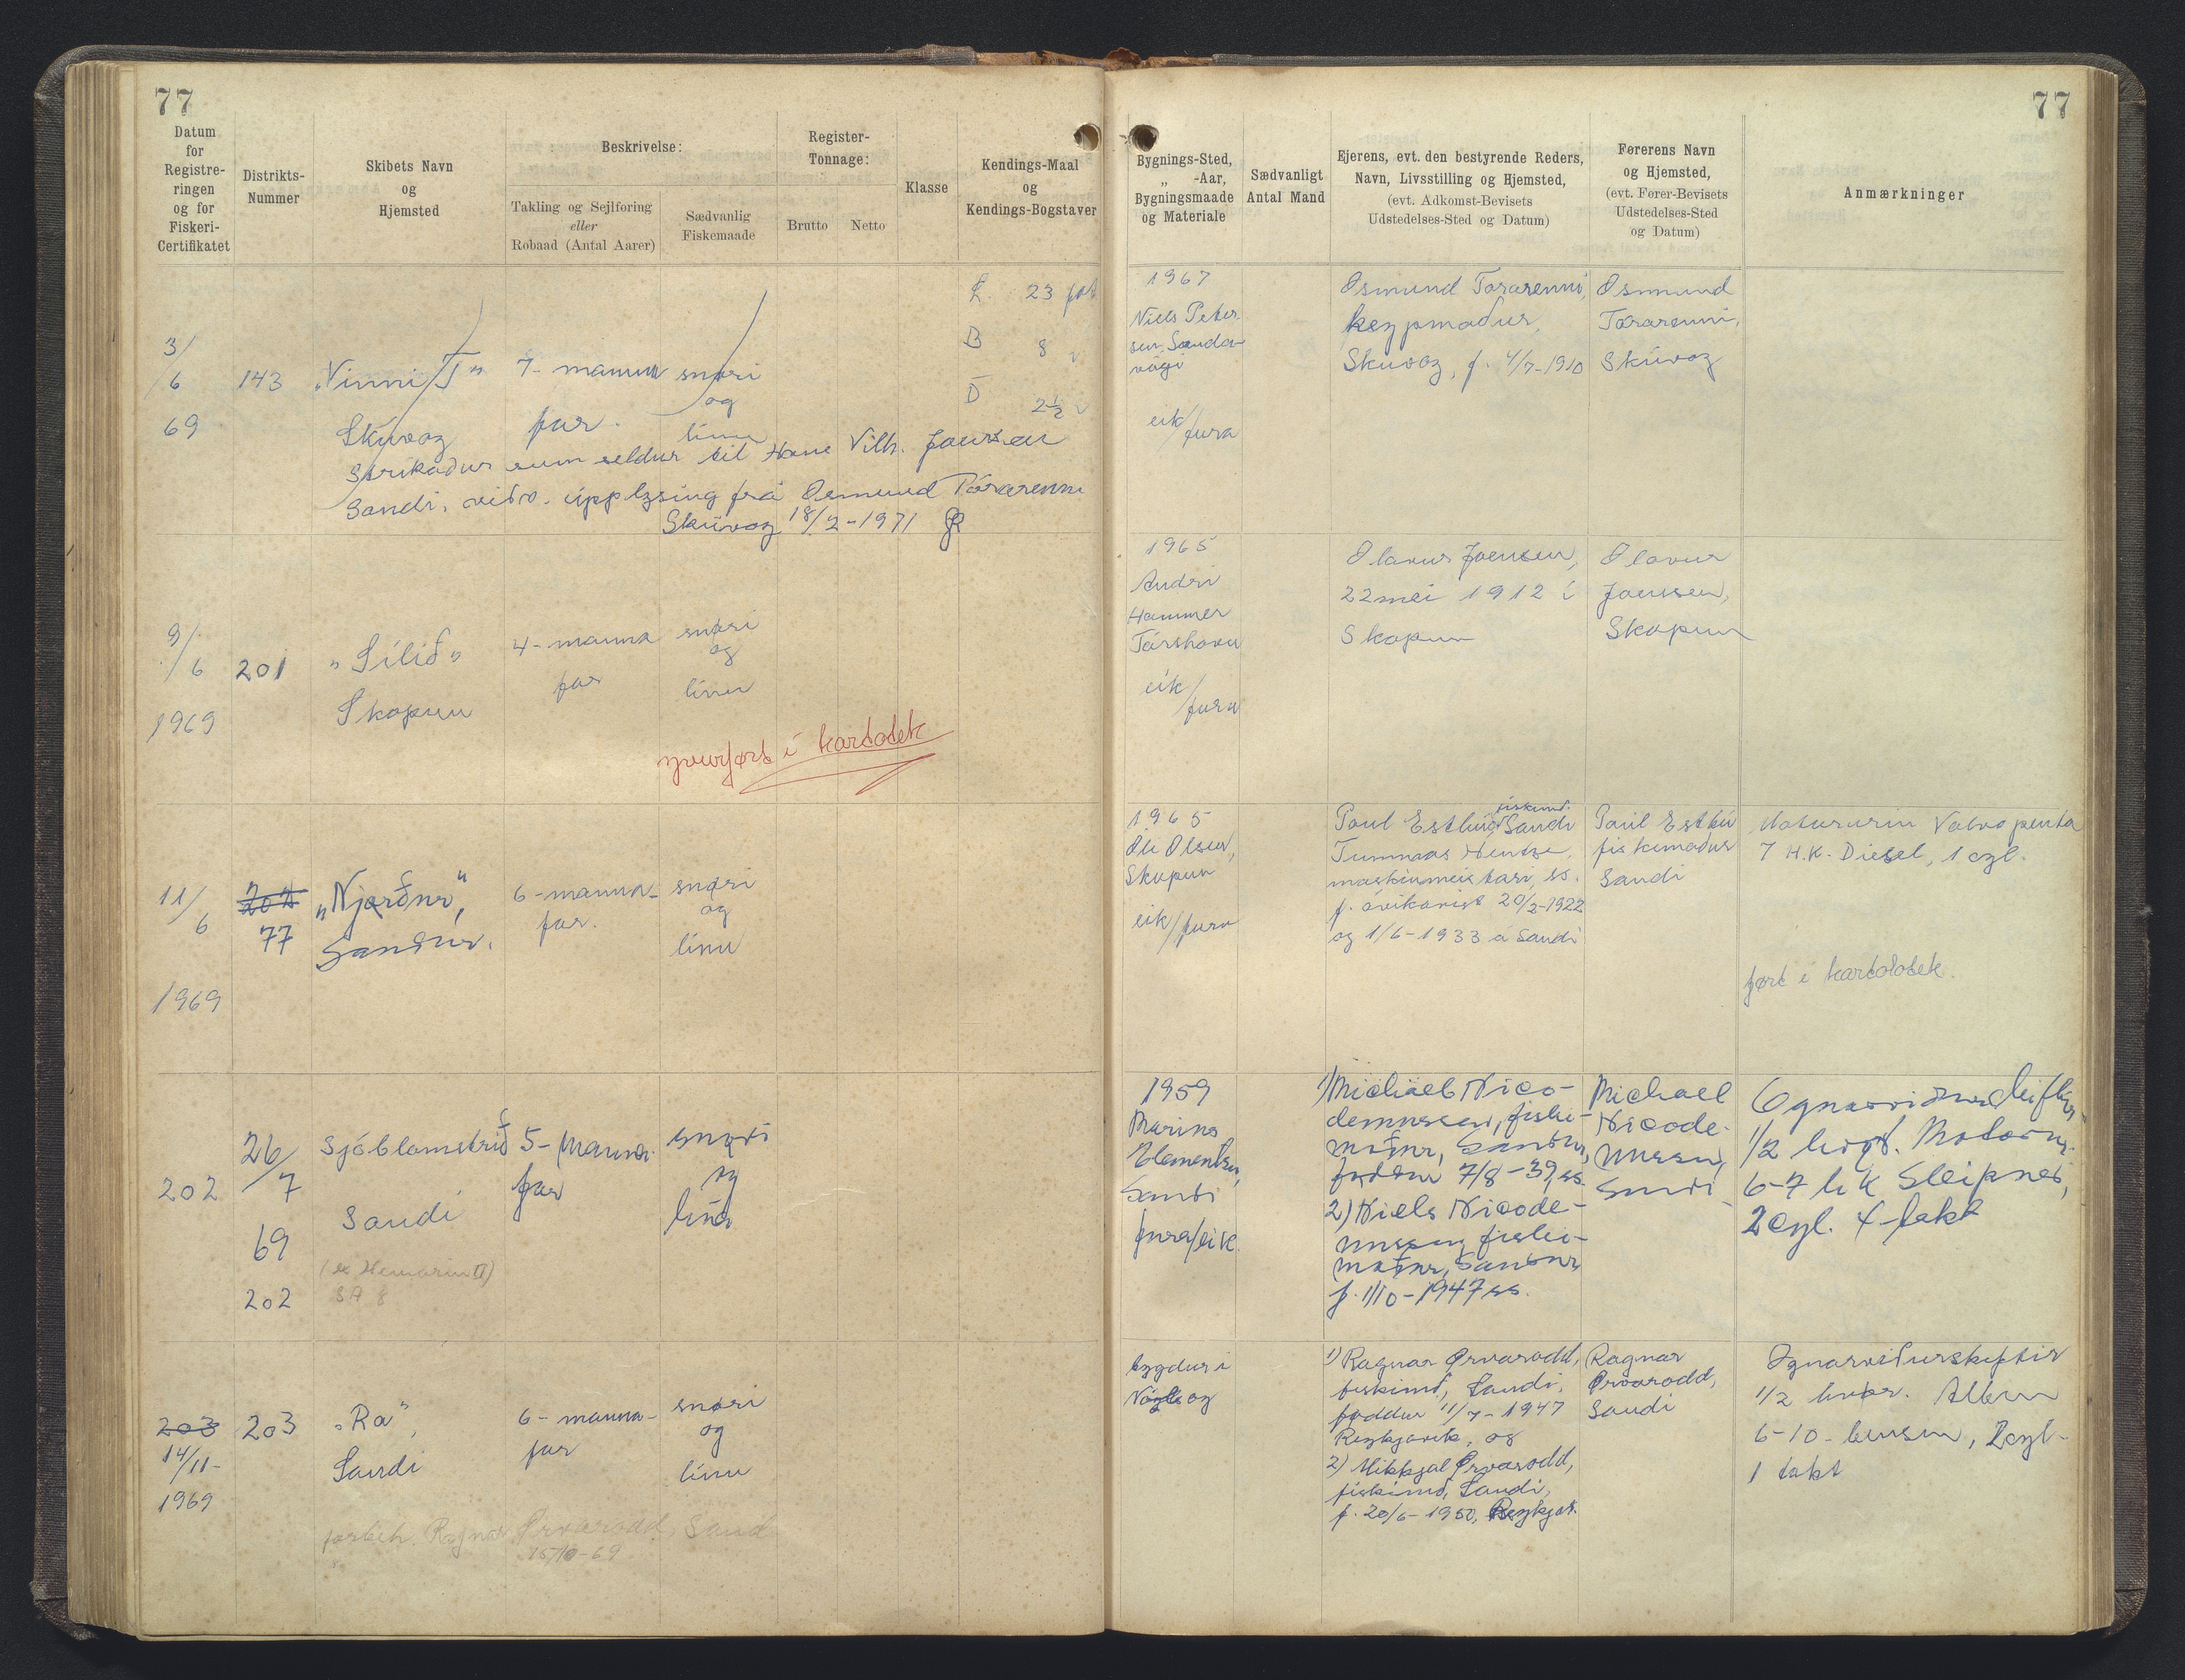 77
77
Datum
for
Registre-
ringen
og for
Fiskeri-
Certifikatet
Distrikts-
Nummer
Skibets Navn
og
Hjemsted
Beskrivelse:
Takling og Sejlføring
eller
Robaad (Antal Aarer)
Sædvanlig
Fiskemaade
Register-
Tonnage:
Brutto
Netto
Klasse
Kendings-Maal
og
Kendings-Bogstaver
Bygnings-Sted,
„ -Aar,
Bygningsmaade
og Materiale
Sædvanligt
Antal Mand
Ejerens, evt. den bestyrende Reders,
Navn, Livsstilling og Hjemsted,
(evt. Adkomst-Bevisets
Udstedelses-Sted og Datum)
Førerens Navn
og Hjemsted,
(evt. Fører-Bevisets
Udstedelses-Sted
og Datum)
Anmærkninger
3/
/6
69
143
„Vinni T"
Skúvoy
7- manna
far.
snøri
og
línu
L. 23 fot
B 8 "
D 2½ "
Strikaður sum seldur til Hans Vilh. Joensen
Sandi, við v. upplýsing frá Osmund Tórarenni
Skúvoy 18/2-1971
1967
Niels Peter-
sen, Sanda-
vági
eik/
fura
Osmund Tórarenni,
keypmaður,
Skúvoy, f. 4/7-1910
Osmund
Tórarenni,
Skúvoy
9/
/6
1969
201
„Sílið"
Skopun
4- manna
far
snøri
og
línu
yvurført í kartotek
1965
Andri
Hammer
Tórshavn
eik/
fura
Olavur Joensen,
22 mei 1912 í
Skopun
Olavur
Joensen,
Skopun
11/
6
1969
202
77
„Njørður",
Sandur.
6-manna-
far.
snøri
og
línu
1965
Óli Olsen,
Skopun
eik/fura
fiskimð.
Poul Esthúð Sandi
Tummas Hentze,
maskinmeistari, ss.
f. ávikavist 20/2-1922
og 1/6-1933 á Sandi
Poul Esthú
fiskimaður
Sandi
Motorurin Volvo penta
7 H.K. Diesel, 1 cyl.
ført í kartotek.
202
26/
7
69
202
Sjóblomstrið
Sandi
SA 8
5- manna
far
snøri
og
línu
1959
Marius
Clementsen,
Sandi
fura/eik.
1) Michael Nico-
demussen, fiski-
maður, Sandur,
føddur 7/8-39, ss.
2) Niels Nicode-
mussen, fiski-
maður, Sandur,
f. 1/10-1947 ss.
Michael
Nicode-
mussen,
Sandi
1/2 Motorur
6-7 hk Sleipner,
2 cyl. 4-takt
203
14/11-
1969
203
„Ra",
Sandi
6- manna-
far
snøri
og
línu
Ragnar Ørvarodd, Sand
15/10-69
bygdur í
Nólsoy
1) Ragnar Ørvarodd,
fiskimð, Sandi,
føddur 11/7-1947
Reykjavik, og
2) Mikkjal Ørvarodd,
fiskimð, Sandi,
f. 20/6-1950, Reykjav.
Ragnar
Ørvarodd,
Sandi
Ognarviðurskiftir
1/2 hvør. Albin
6-10- bensin, 2 cyl-
1 takt